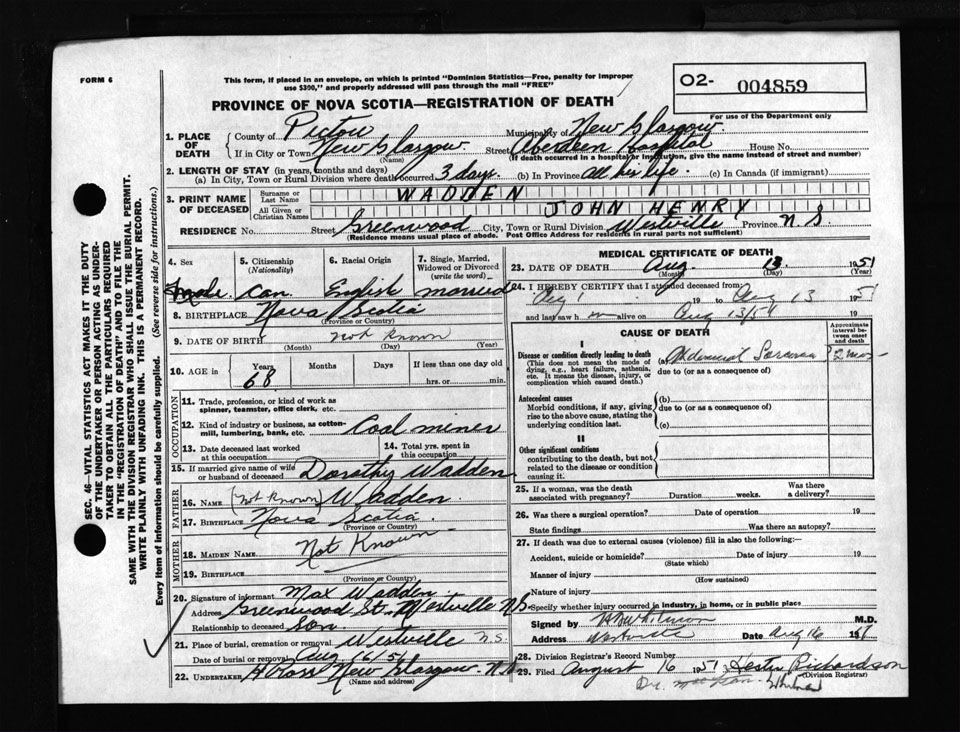 FORM 6
This form, if placed in an envelope, on which is printed "Dominion Statistics—Free, penalty for improper
use $300," and properly addressed will pass through the mail "FREE"
O2- 004859
For use of the Department only
PROVINCE OF NOVA SCOTIA—REGISTRATION OF DEATH
1. PLACE OF DEATH
County of Pictou Municipality of New Glasgow
If in City or Town New Glasgow Street Aberdeen Hospital House No.
(Name) (If death occurred in a hospital or institution, give the name instead of street and number)
2. LENGTH OF STAY (in years, months and days)
(a) In City, Town or Rural Division where death occurred 3 days. (b) In Province all his life. (c) In Canada (if immigrant)
3. PRINT NAME OF DECEASED
Surname or Last Name WADDEN
All Given or Christian Names JOHN HENRY
RESIDENCE No. Street Greenwood City, Town or Rural Division Westville Province N.S.
(Residence means usual place of abode. Post Office Address for residents in rural parts not sufficient)
4. Sex
Male
5. Citizenship (Nationality)
Can.
6. Racial Origin
English
7. Single, Married, Widowed or Divorced (write the word)
married
8. BIRTHPLACE Nova Scotia
(Province or Country)
9. DATE OF BIRTH not known
(Month) (Day) (Year)
10. AGE in Years Months Days If less than one day old
68 hrs. or min.
OCCUPATION
11. Trade, profession, or kind of work as
spinner, teamster, office clerk, etc.
12. Kind of industry or business, as cotton-
mill, lumbering, bank, etc. Coal miner
13. Date deceased last worked
at this occupation
14. Total yrs. spent in
this occupation
15. If married give name of wife
or husband of deceased Dorothy Wadden
FATHER
16. NAME (not known) Wadden
17. BIRTHPLACE Nova Scotia
(Province or Country)
MOTHER
18. MAIDEN NAME Not Known
19. BIRTHPLACE
(Province or Country)
20. Signature of informant Max Wadden
Address Greenwood St. Westville N.S.
Relationship to deceased Son.
21. Place of burial, cremation or removal Westville N.S.
Date of burial or removal Aug 16/51
22. UNDERTAKER H Ross New Glasgow N.S.
(Name and address)
MEDICAL CERTIFICATE OF DEATH
23. DATE OF DEATH Aug. 13 1951
(Month) (Day) (Year)
24. I HEREBY CERTIFY that I attended deceased from:
Aug 1 19 to Aug 13 1951
and last saw him alive on Aug 13/51 19
CAUSE OF DEATH
Approximate interval between onset and death
I
Disease or condition directly leading to death
(This does not mean the mode of
dying, e.g., heart failure, asthenia,
etc. It means the disease, injury, or
complication which caused death.)
(a) 2 mos
due to (or as a consequence of)
Antecedent causes
Morbid conditions, if any, giving
rise to the above cause, stating the
underlying condition last.
(b)
due to (or as a consequence of)
(c)
II
Other significant conditions
contributing to the death, but not
related to the disease or condition
causing it.
25. If a woman, was the death
associated with pregnancy? Duration weeks. Was there
a delivery?
26. Was there a surgical operation? Date of operation 19
State findings Was there an autopsy?
27. If death was due to external causes (violence) fill in also the following:—
Accident, suicide or homicide? Date of injury 19
(State which)
Manner of injury
(How sustained)
Nature of injury
Specify whether injury occurred in industry, in home, or in public place
Signed by M.D.
Address Westville Date Aug 16 1951
28. Division Registrar's Record Number
29. Filed August 16 1951 Hester Richardson
(Division Registrar)
SEC. 46—VITAL STATISTICS ACT MAKES IT THE DUTY
OF THE UNDERTAKER OR PERSON ACTING AS UNDER-
TAKER TO OBTAIN ALL THE PARTICULARS REQUIRED
IN THE "REGISTRATION OF DEATH" AND TO FILE THE
SAME WITH THE DIVISION REGISTRAR WHO SHALL ISSUE THE BURIAL PERMIT.
WRITE PLAINLY WITH UNFADING INK. THIS IS A PERMANENT RECORD.
Every item of information should be carefully supplied. (See reverse side for instructions.)